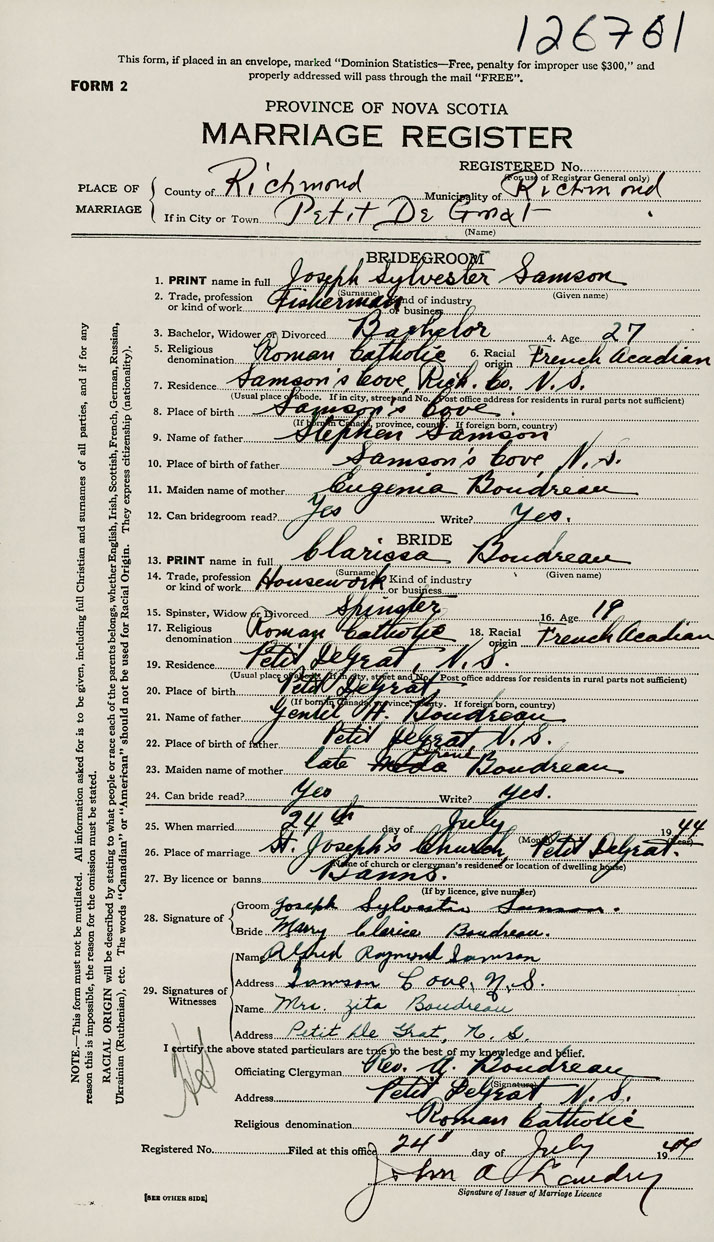 126761
This form, if placed in an envelope, marked "Dominion Statistics—Free, penalty for improper use $300," and
properly addressed will pass through the mail "FREE".
FORM 2
PROVINCE OF NOVA SCOTIA
MARRIAGE REGISTER
REGISTERED No.
(For use of Registrar General only)
PLACE OF MARRIAGE
County of Richmond Municipality of Richmond
If in City or Town Petit De Grat
(Name)
BRIDEGROOM
1. PRINT name in full Joseph Sylvester Samson
(Surname) (Given name)
2. Trade, profession or kind of work Fisherman Kind of industry or business
3. Bachelor, Widower or Divorced Bachelor 4. Age 27
5. Religious denomination Roman Catholic 6. Racial origin French Acadian
7. Residence Samson's Cove, Rich. Co. N.S.
(Usual place of abode. If in city, street and No. Post office address for residents in rural parts not sufficient)
8. Place of birth Samson's Cove.
(If born in Canada, province, county. If foreign born, country)
9. Name of father Stephen Samson
10. Place of birth of father Samson's Cove, N.S.
11. Maiden name of mother Eugenia Boudreau
12. Can bridegroom read? Yes Write? Yes.
BRIDE
13. PRINT name in full Clarissa Boudreau
(Surname) (Given name)
14. Trade, profession or kind of work Housework Kind of industry or business
15. Spinster, Widow or Divorced Spinster 16. Age 19
17. Religious denomination Roman Catholic 18. Racial origin French Acadian
19. Residence Petit DeGrat, N.S.
(Usual place of abode. If in city, street and No. Post office address for residents in rural parts not sufficient)
20. Place of birth Petit DeGrat,
(If born in Canada, province, county. If foreign born, country)
21. Name of father H. Boudreau
22. Place of birth of father Petit DeGrat N.S.
23. Maiden name of mother late Boudreau
24. Can bride read? Yes Write? Yes.
25. When married 24th day of July 1944
(Month) (Year)
26. Place of marriage St. Joseph's Church, Petit DeGrat.
(Name of church or clergyman's residence or location of dwelling house)
27. By licence or banns Banns.
(If by licence, give number)
28. Signature of
Groom Joseph Sylvester Samson.
Bride Mary Clarice Boudreau.
29. Signatures of Witnesses
Name Alfred Raymond Samson
Address Samson Cove, N.S.
Name Mrs. Zita Boudreau
Address Petit De Grat, N.S.
I certify the above stated particulars are true to the best of my knowledge and belief.
Officiating Clergyman Rev. A. Boudreau
(Signature)
Address Petit DeGrat N.S.
Religious denomination Roman Catholic
Registered No. Filed at this office 24" day of July 1944
John A Landry
Signature of Issuer of Marriage Licence
[SEE OTHER SIDE]
NOTE.—This form must not be mutilated. All information asked for is to be given, including full Christian and surnames of all parties, and if for any
reason this is impossible, the reason for the omission must be stated.
RACIAL ORIGIN will be described by stating to what people or race each of the parents belongs, whether English, Irish, Scottish, French, German, Russian,
Ukrainian (Ruthenian), etc. The words "Canadian" or "American" should not be used for Racial Origin. They express citizenship (nationality).